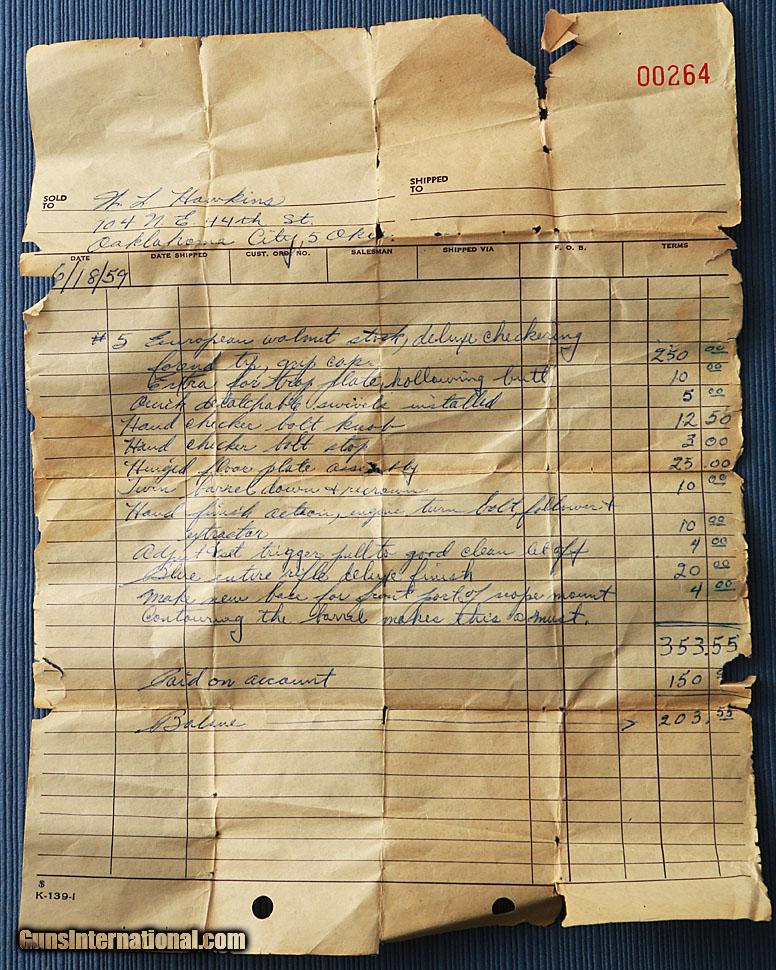 00264
SOLD TO
W. L Hawkins
SHIPPED TO
104 N E 44th St.
Oaklahoma City, 5 Okla.
DATE DATE SHIPPED CUST. ORD. NO. SALESMAN SHIPPED VIA F. O. B. TERMS
6/18/59
#5 European walnut stock, deluxe checkering
forend tip, grip cap. 250 00
Extra for trap plate, hollowing butt 10 00
Quick detatchable swivels installed 5 00
Hand checker bolt knob 12 50
Hand checker bolt stop 3 00
Hinged floor plate assembly 25.00
Turn barrel down & recrown 10 00
Hand finish action, engine turn bolt follower &
extractor 10 00
Adj. & set trigger pull to good clean let off 4 00
Blue entire rifle deluxe finish 20 00
Make new base for front part of scope mount 4 00
Contouring the barrel makes this a must.
353.55
Paid on account 150
Balance > 203.55
$
K-139-1
GunsInternational.com